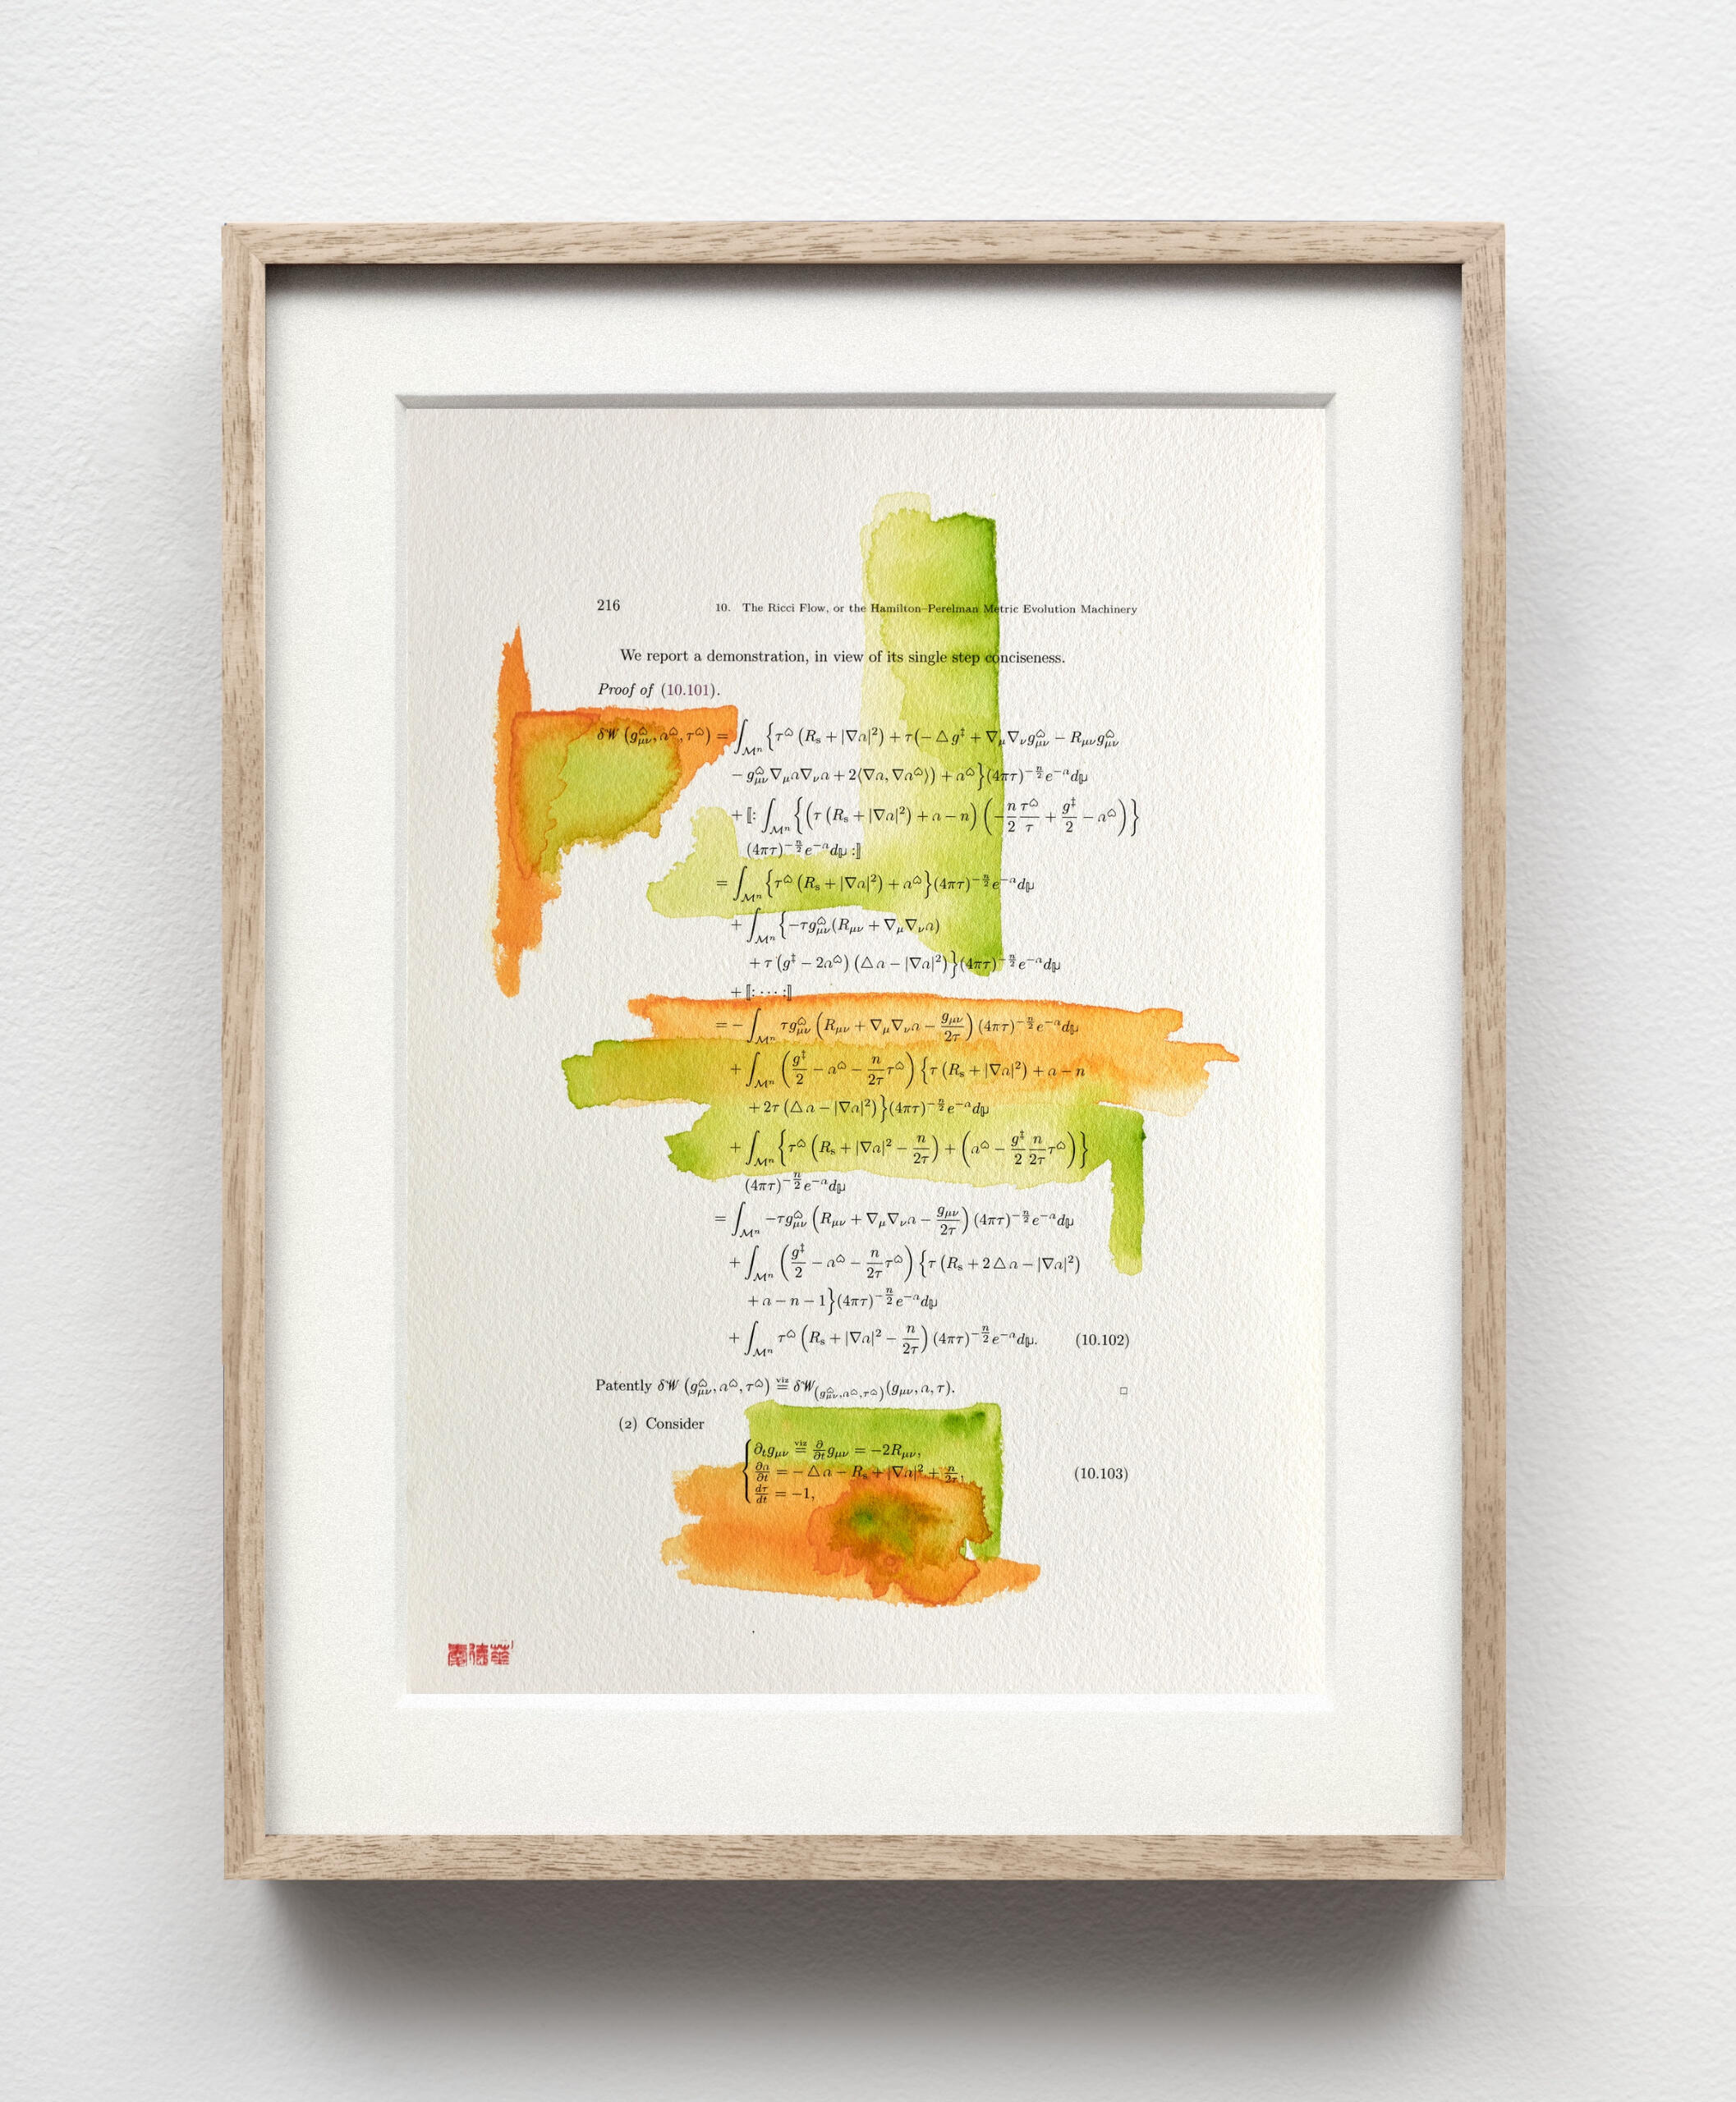 216 10. The Ricci Flow, or the Hamilton–Perelman Metric Evolution Machinery
We report a demonstration, in view of its single step conciseness.
Proof of (10.101).
δ𝒲 (g^⌂_{μν}, a^⌂, τ^⌂) = ∫_{ℳⁿ} {τ^⌂ (R_s + |∇a|²) + τ(− △ g^‡ + ∇_μ∇_ν g^⌂_{μν} − R_{μν} g^⌂_{μν}
− g^⌂_{μν} ∇_μ a ∇_ν a + 2⟨∇a, ∇a^⌂⟩) + a^⌂}(4πτ)^{−n/2} e^{−a} dμ
+ ⟦: ∫_{ℳⁿ} {(τ (R_s + |∇a|²) + a − n) (−n/2 τ^⌂/τ + g^‡/2 − a^⌂)}
(4πτ)^{−n/2} e^{−a} dμ :⟧
= ∫_{ℳⁿ} {τ^⌂ (R_s + |∇a|²) + a^⌂}(4πτ)^{−n/2} e^{−a} dμ
+ ∫_{ℳⁿ} {−τ g^⌂_{μν} (R_{μν} + ∇_μ∇_ν a)
+ τ (g^‡ − 2a^⌂) (△ a − |∇a|²)}(4πτ)^{−n/2} e^{−a} dμ
+ ⟦: ···· :⟧
= − ∫_{ℳⁿ} τ g^⌂_{μν} (R_{μν} + ∇_μ∇_ν a − g_{μν}/2τ) (4πτ)^{−n/2} e^{−a} dμ
+ ∫_{ℳⁿ} (g^‡/2 − a^⌂ − n/2τ τ^⌂) {τ (R_s + |∇a|²) + a − n
+ 2τ (△ a − |∇a|²)}(4πτ)^{−n/2} e^{−a} dμ
+ ∫_{ℳⁿ} {τ^⌂ (R_s + |∇a|² − n/2τ) + (a^⌂ − g^‡/2 n/2τ τ^⌂)}
(4πτ)^{−n/2} e^{−a} dμ
= ∫_{ℳⁿ} −τ g^⌂_{μν} (R_{μν} + ∇_μ∇_ν a − g_{μν}/2τ) (4πτ)^{−n/2} e^{−a} dμ
+ ∫_{ℳⁿ} (g^‡/2 − a^⌂ − n/2τ τ^⌂) {τ (R_s + 2 △ a − |∇a|²)
+ a − n − 1}(4πτ)^{−n/2} e^{−a} dμ
+ ∫_{ℳⁿ} τ^⌂ (R_s + |∇a|² − n/2τ) (4πτ)^{−n/2} e^{−a} dμ. (10.102)
Patently δ𝒲 (g^⌂_{μν}, a^⌂, τ^⌂) =^{viz} δ𝒲_{(g^⌂_{μν}, a^⌂, τ^⌂)} (g_{μν}, a, τ). □
(2) Consider
{∂_t g_{μν} =^{viz} ∂/∂t g_{μν} = −2R_{μν},
∂a/∂t = − △ a − R_s + |∇a|² + n/2τ, (10.103)
dτ/dt = −1,